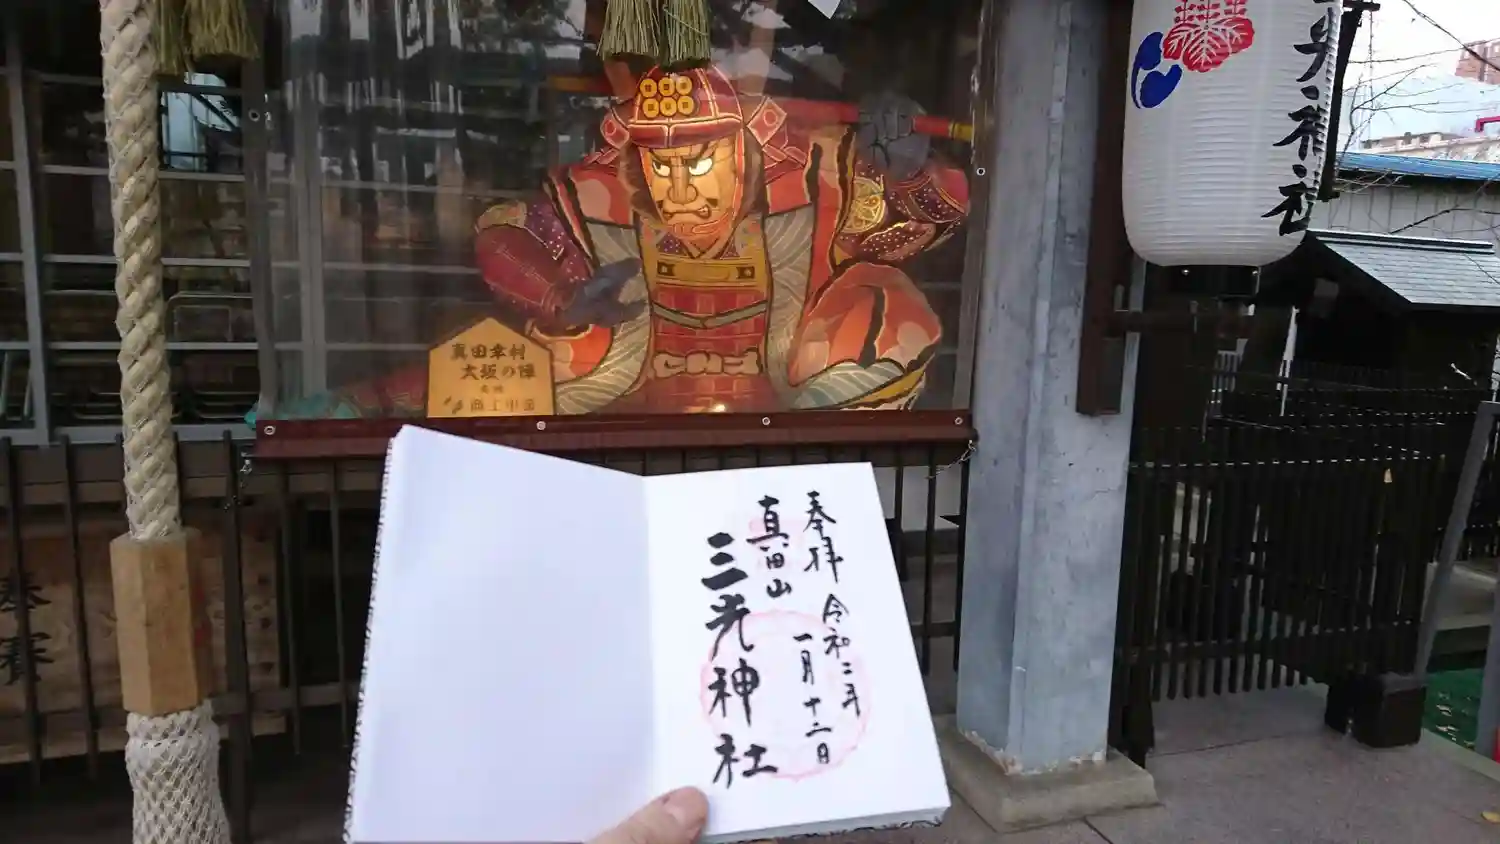 真田幸村
大坂の陣
光神社
奉拝
令和二年
一月十二日
真田山
三光神社
奉賽